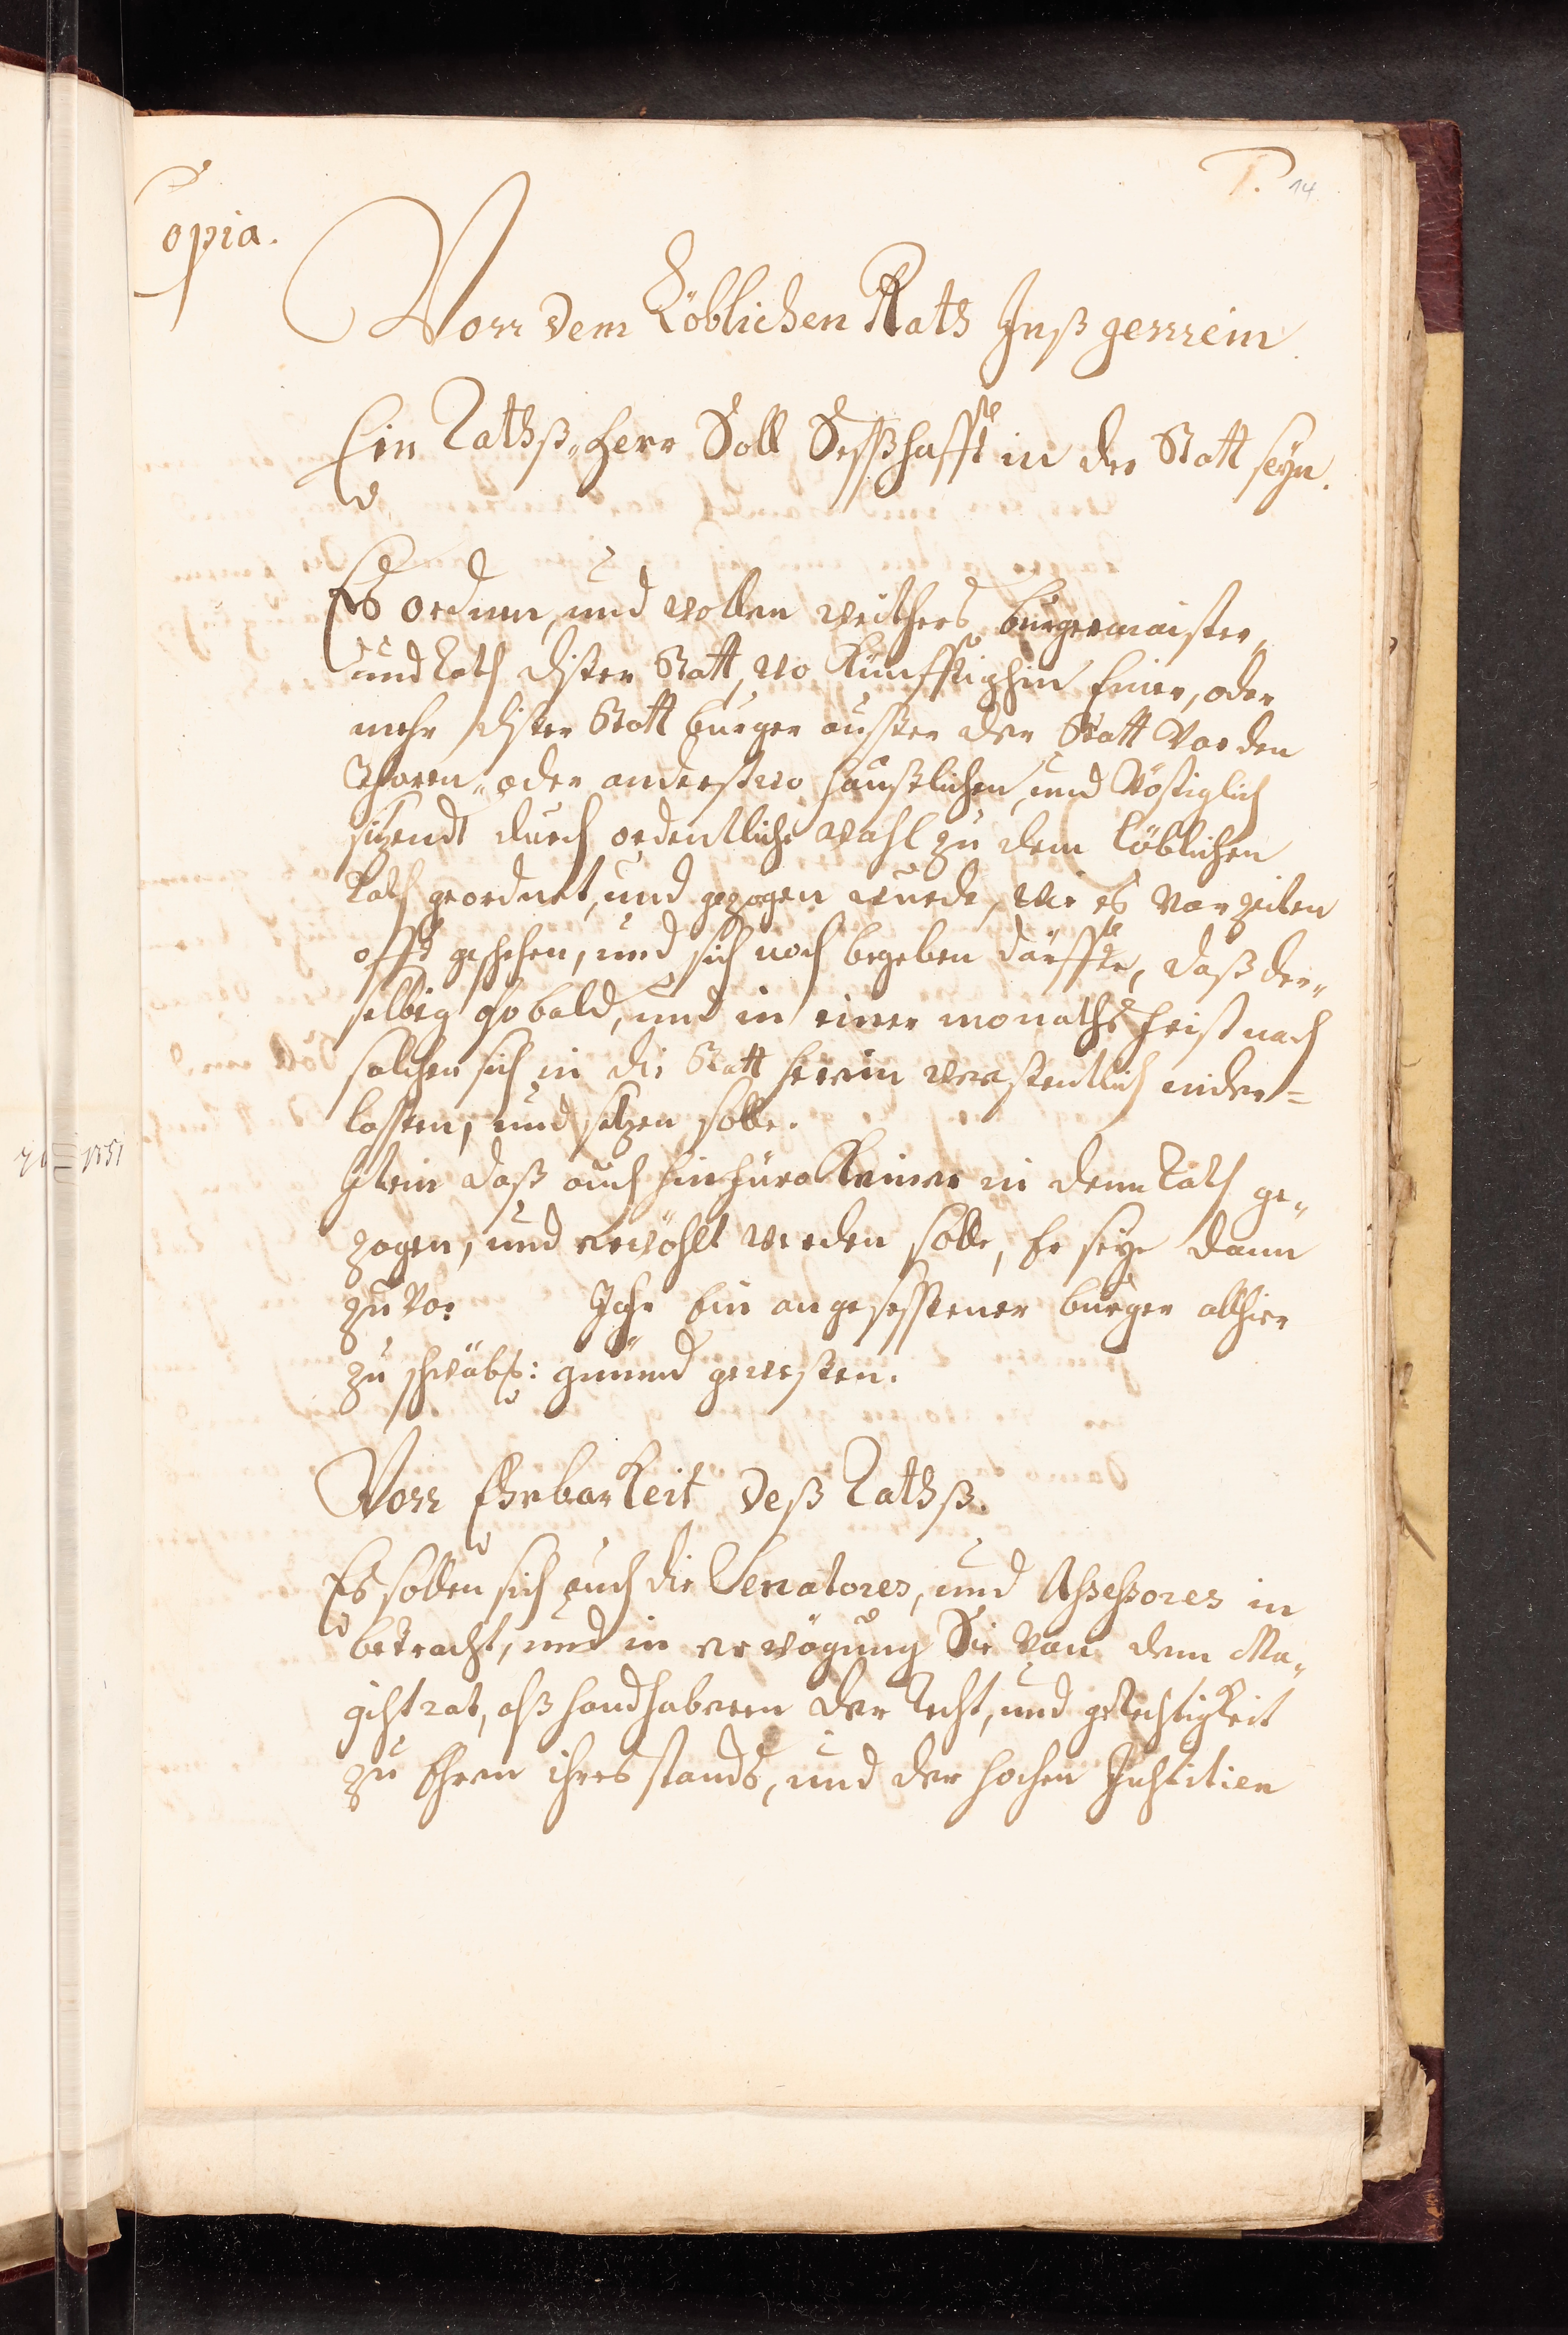 Copia.
1. 14
Von dem Löblichen Rath Inßgemein.
Ein Rathß„Herr Soll Seßhafft in der Statt seyn.
Es ordnen, und wollen weithers burgermaister,
und Rath diser Statt, wo Künfftighin Einer, oder
mehr diser Statt burger ausser der Statt Vor den
Thoren„ oder anderstwo haußlichen, und
sizendt durch ordentliche wahl zu dem löblichen
Rath geordnet, und gezogen wurde, wie es Vor zeiten
offt geschehen, und sich noch begeben därffte, daß der„
selbig so bald, und in einer monaths frist nach
solchen sich in die Statt herein wesentlich nider=
lassen, und setzen solle.
Item daß auch hinfüro Keiner in den Rath ge„
zogen, und erwöhlt werden solle, Er seye dann
zuvor Jahr Ein angesessener burger allhier
zu schwäb: gmünd gewesen.
Von Ehrbarkeit deß Rathß.
Es sollen sich auch die Senatores, und Assessores in
betracht, und in erwögung Sie von dem Ma„
gistrat, alß handhaberen der Recht, und gerechtigkeit
zu Ehren ihres stands, und der hochen Justitien
1551